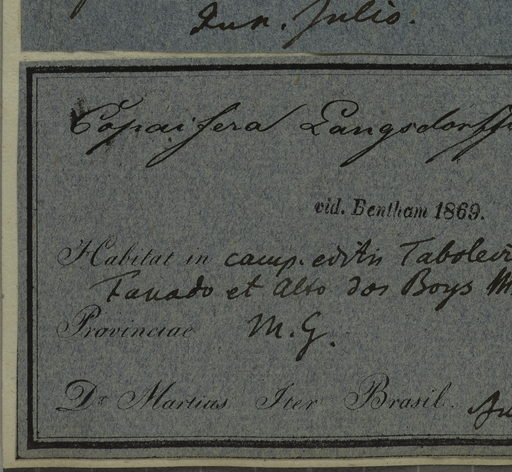 Jun. Julio.
Copaifera Langsdorff
vid. Bentham 1869.
Habitat in camp. editis Taboleir
Fanado et Alto dos Boys M
Provinciae M. G.
Dr Martius Iter Brasil.